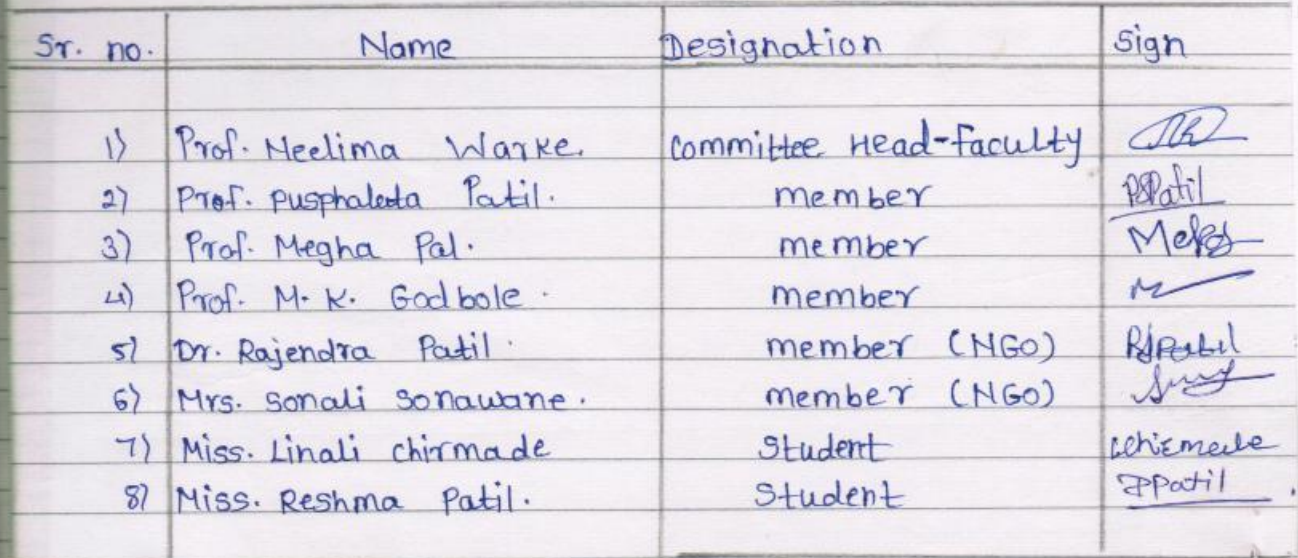 Sr. no. Name Designation Sign
1) Prof. Neelima Warke. Committee Head-faculty
2) Prof. Pusphalata Patil. member PSPatil
3) Prof. Megha Pal. member
4) Prof. M. K. Godbole. member
5) Dr. Rajendra Patil. member (NGO)
6) Mrs. Sonali Sonawane. member (NGO)
7) Miss. Linali Chirmade Student
8) Miss. Reshma Patil. Student